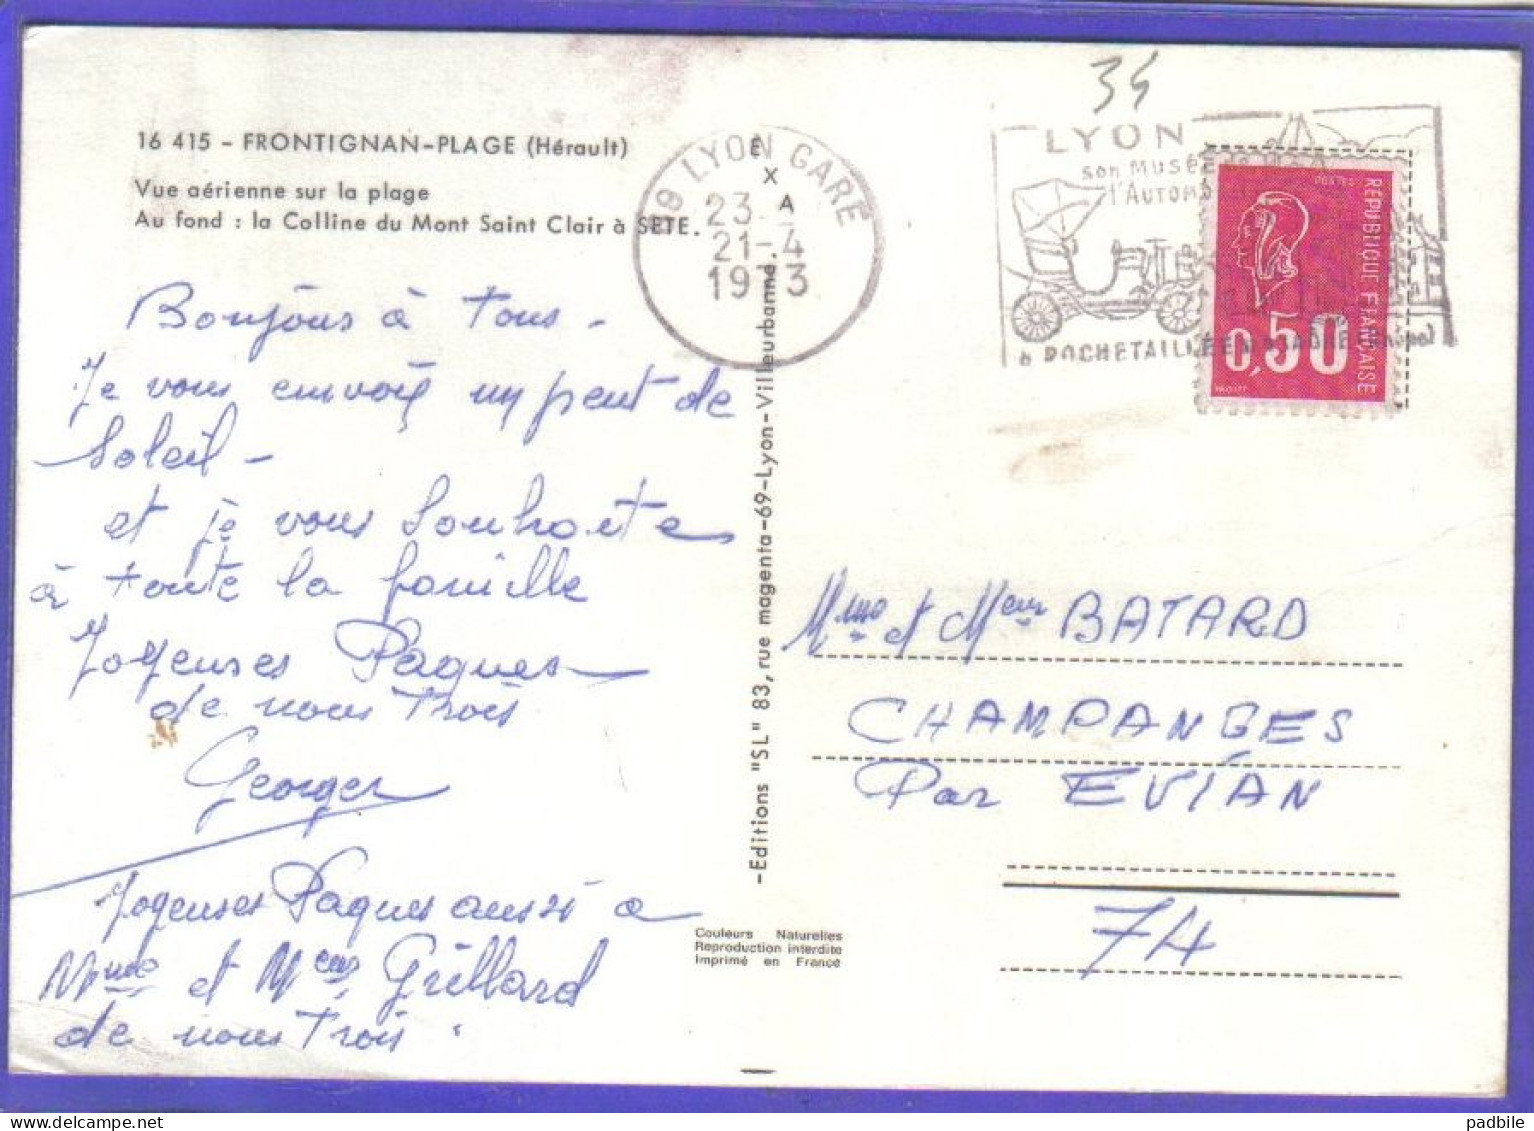 16 415 - FRONTIGNAN-PLAGE (Hérault)
Vue aérienne sur la plage
Au fond : la Colline du Mont Saint Clair à SETE.
Bonjours à Tous -
Je vous envoie un peut de
Soleil -
et je vous Souhaites
à toute la famille
Joyeuses Paques
de nous Trois
Georges
Joyeuses Paques aussi a
Mme et Meur Grillard
de nous Trois.
EXA
-Editions "SL" 83, rue magenta-69-Lyon-Villeurbanne.
Couleurs Naturelles
Reproduction interdite
Imprimé en France
69 LYON GARE
23
21-4
1973
34
LYON
son MUSÉE
l'AUTOM
à ROCHETAILLÉE
POSTES
REPUBLIQUE FRANÇAISE
0,50
Mme et Meur BATARD
CHAMPANGES
Par EVIAN
74
padbile